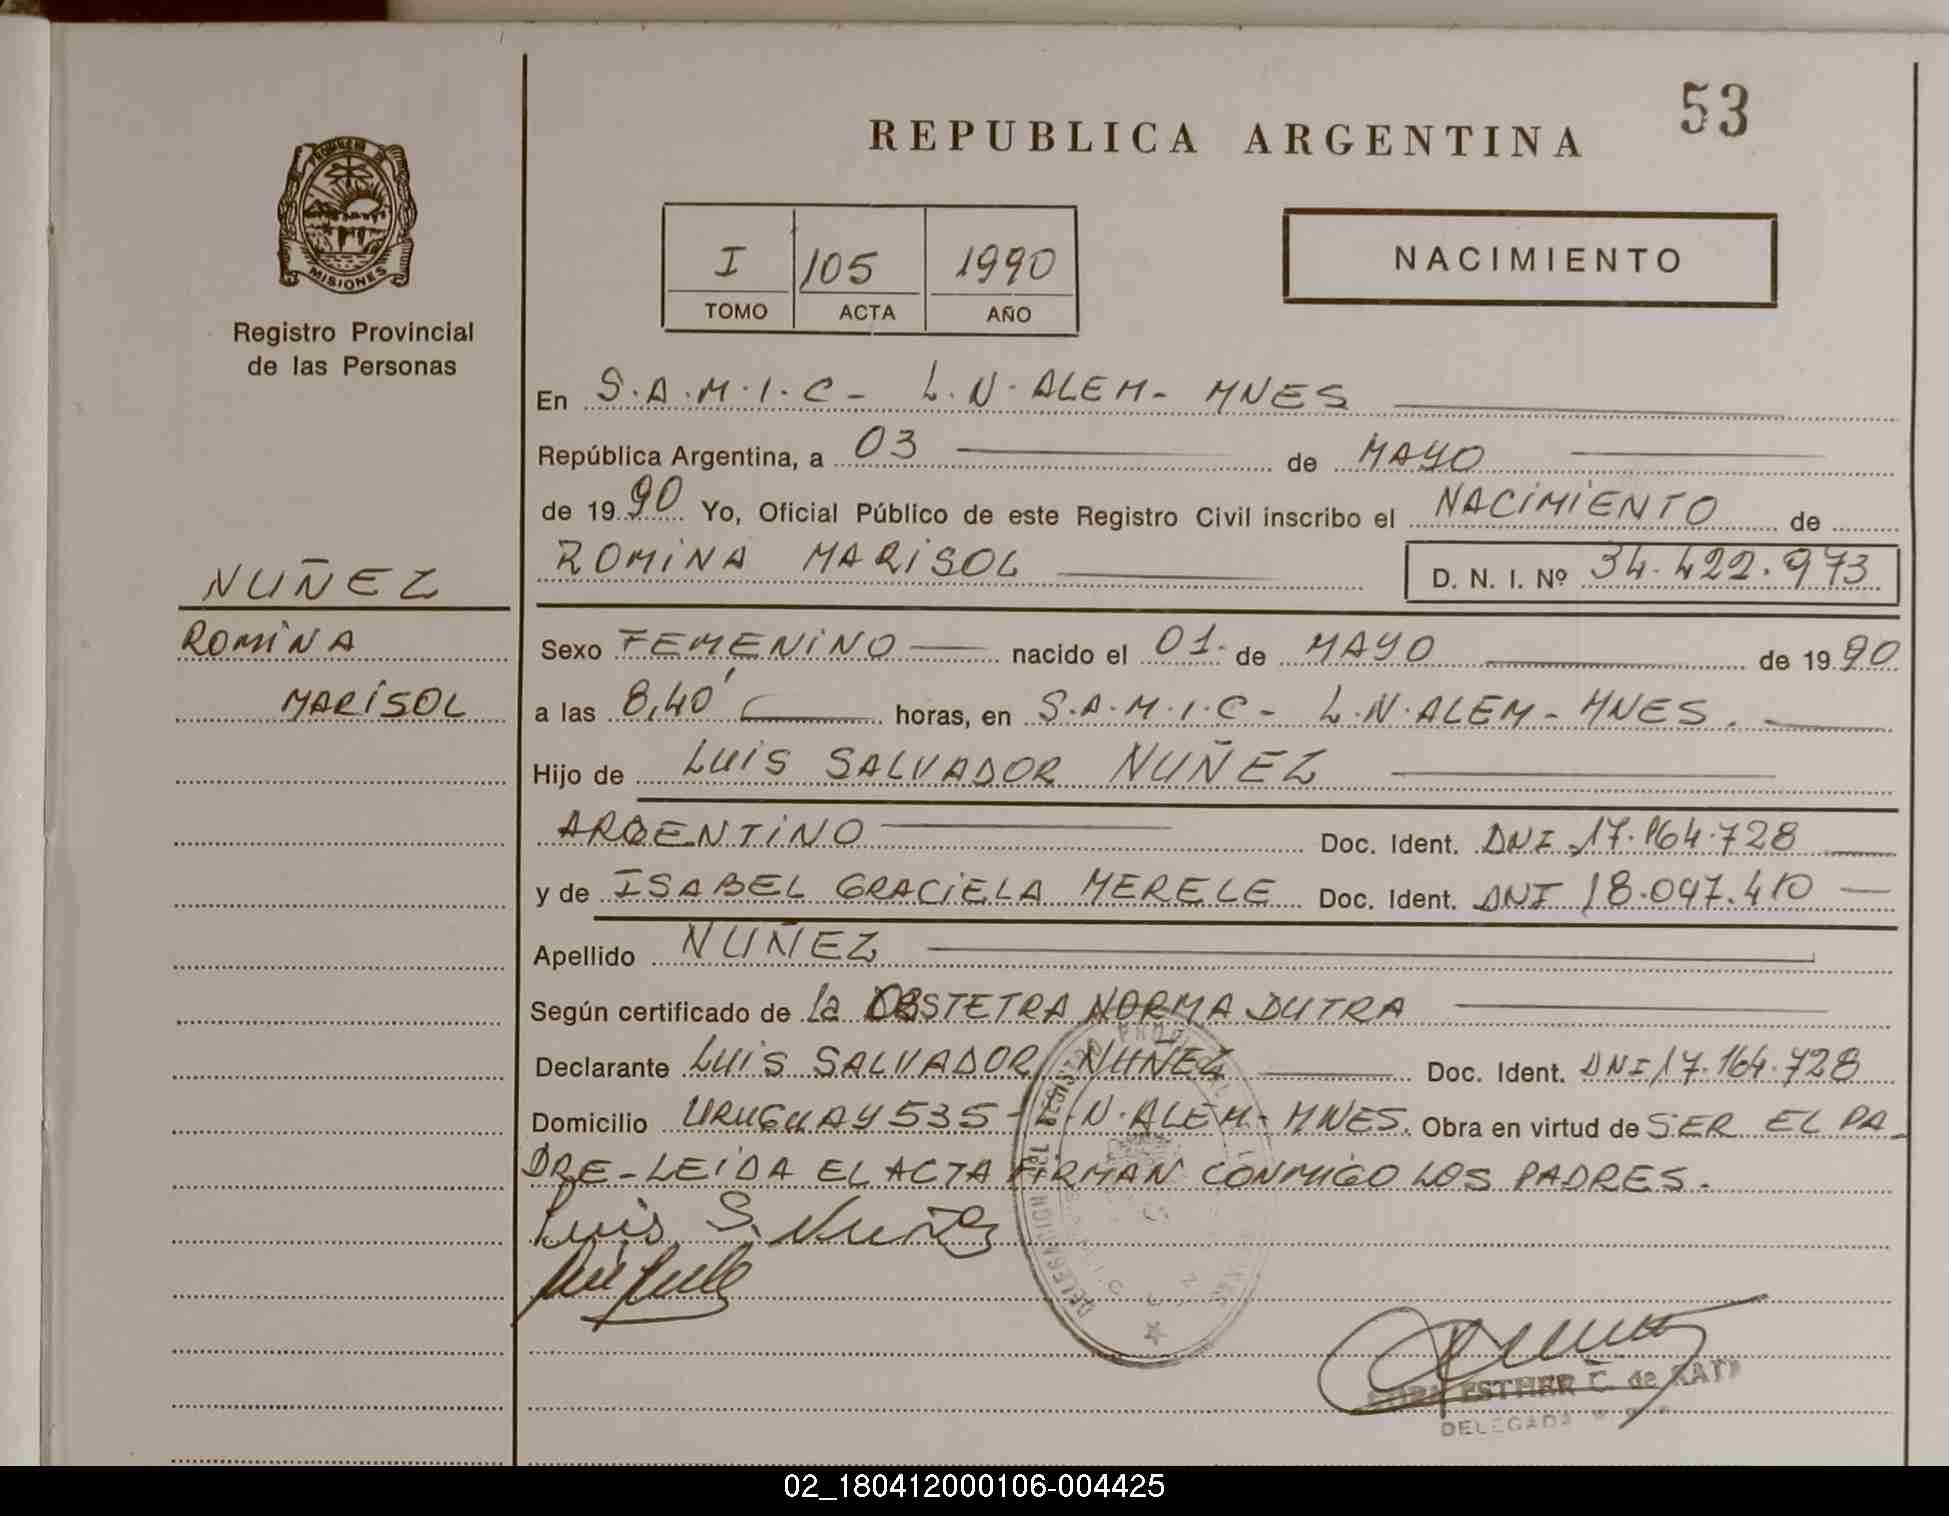 53
REPUBLICA ARGENTINA
PROVINCIA DE
MISIONES
Registro Provincial
de las Personas
I 105 1990
TOMO ACTA AÑO
NACIMIENTO
En S.A.M.I.C - L.N. ALEM - MNES
República Argentina, a 03 de MAYO
de 1990 Yo, Oficial Público de este Registro Civil inscribo el NACIMIENTO de
ROMINA MARISOL D. N. I. Nº 34.422.973
NUÑEZ
ROMINA
MARISOL
Sexo FEMENINO nacido el 01. de MAYO de 1990
a las 8,40' horas, en S.A.M.I.C - L.N. ALEM - MNES.
Hijo de LUIS SALVADOR NUÑEZ
ARGENTINO Doc. Ident. DNI 17.164.728
y de ISABEL GRACIELA MERELE Doc. Ident. DNI 18.097.410
Apellido NUÑEZ
Según certificado de la OBSTETRA NORMA DUTRA
Declarante LUIS SALVADOR NUÑEZ Doc. Ident. DNI 17.164.728
Domicilio URUGUAY 535 - L.N. ALEM - MNES. Obra en virtud de SER EL PA-
DRE - LEIDA EL ACTA FIRMAN CONMIGO LOS PADRES.
Luis S. Nuñez
DELEGACION DEL REGISTRO
ESTHER C. de
DELEGADA
02_180412000106-004425